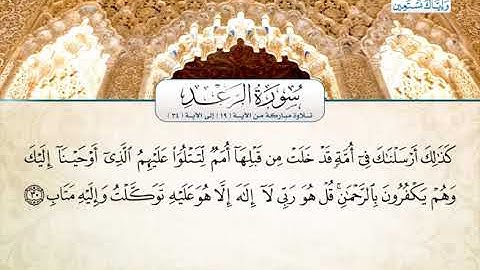 وإياك نستعين
سورة الرعد
تلاوة مباركة من الآية (١٩) إلى الآية (٣٤)
كَذَٰلِكَ أَرْسَلْنَاكَ فِي أُمَّةٍ قَدْ خَلَتْ مِن قَبْلِهَا أُمَمٌ لِّتَتْلُوَا۟ عَلَيْهِمُ الَّذِي أَوْحَيْنَا إِلَيْكَ
وَهُمْ يَكْفُرُونَ بِالرَّحْمَٰنِ ۚ قُلْ هُوَ رَبِّي لَا إِلَٰهَ إِلَّا هُوَ عَلَيْهِ تَوَكَّلْتُ وَإِلَيْهِ مَتَابِ ﴿٣٠﴾